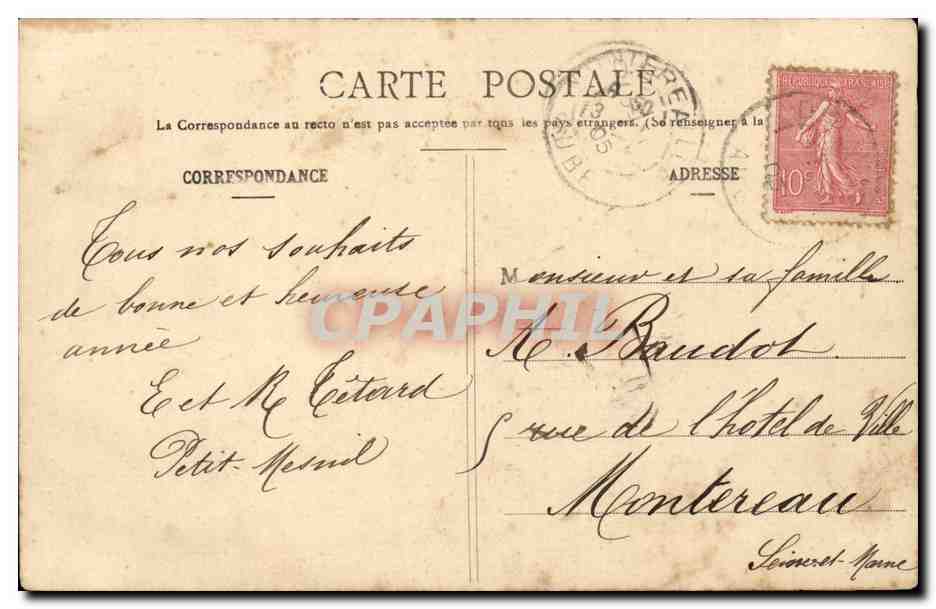 CARTE POSTALE
La Correspondance au recto n'est pas acceptée par tous les pays étrangers. (Se renseigner à la
CORRESPONDANCE
ADRESSE
RÉPUBLIQUE FRANÇAISE
10 c
MONTEREAU
13
05
Tous nos souhaits
de bonne et heureuse
année
E et R Tétard
Petit-Mesnil
Monsieur et sa famille
A. Baudot
5 rue de l'hôtel de Ville
Montereau
Seine-et-Marne
CPAPHIL